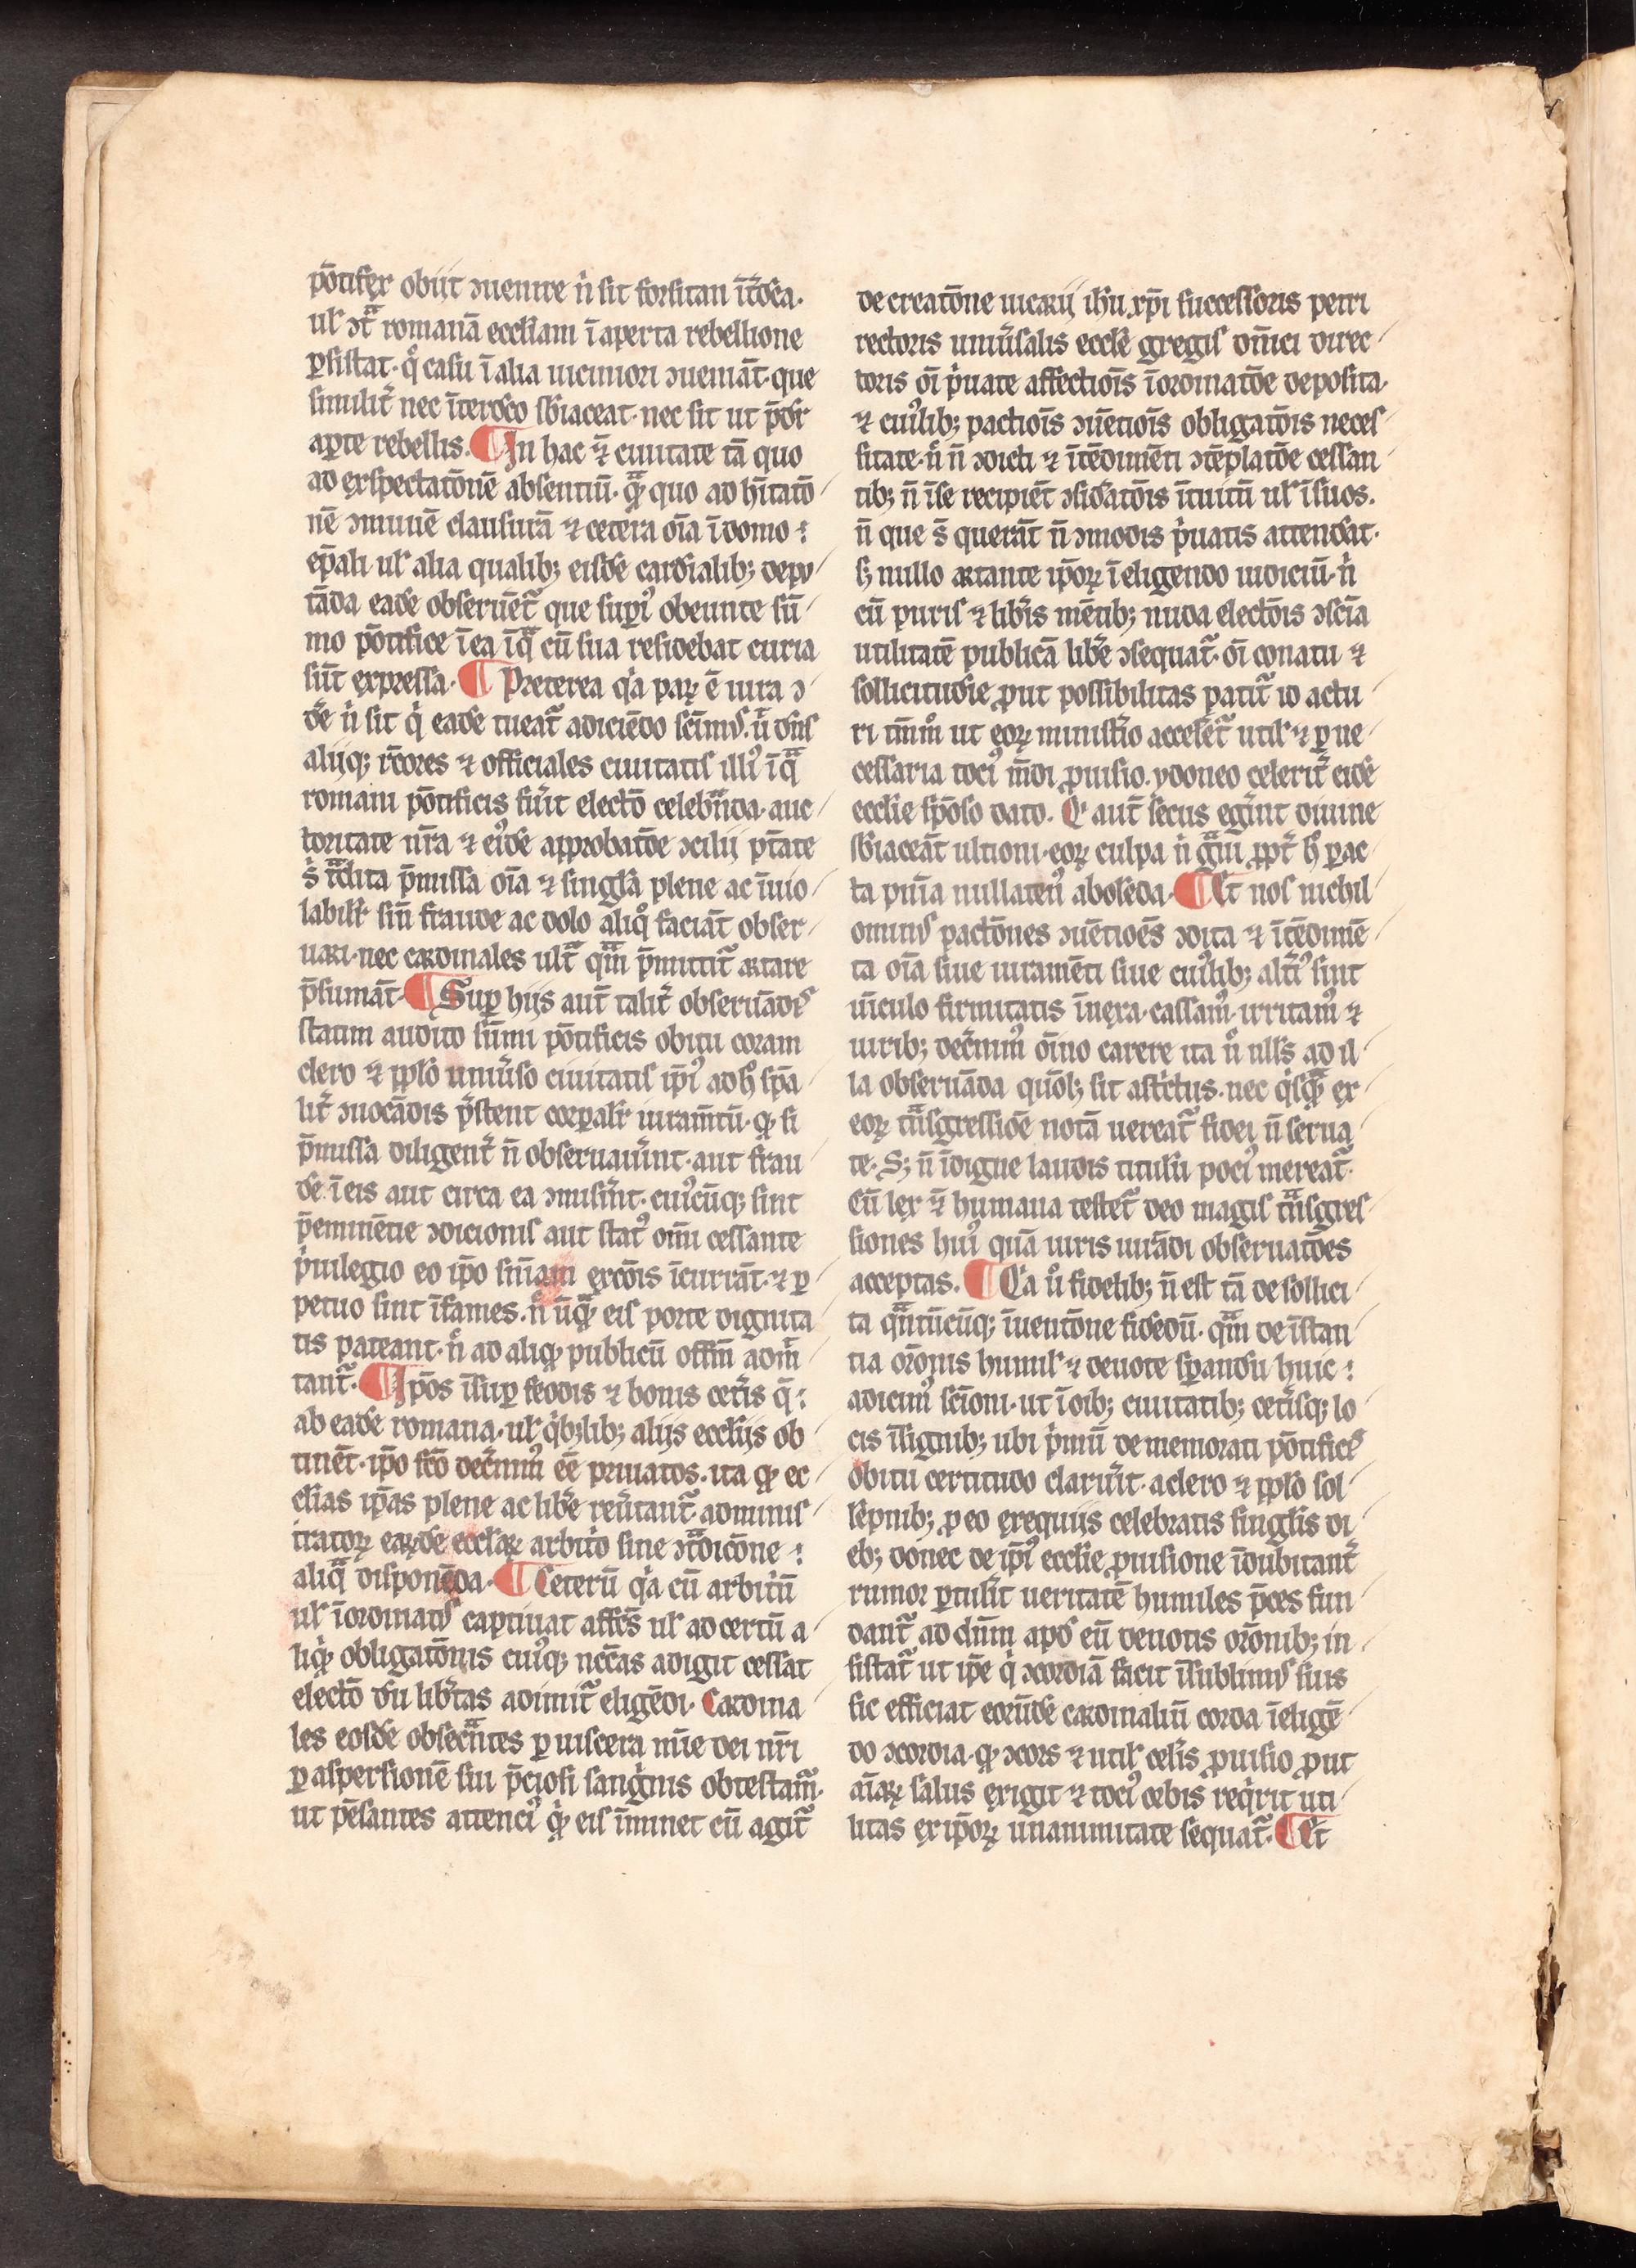 põtifex obijt ɔuenire ń sit forsitan ĩt̃dc̃a.
uł ɔt̃ romanã eccłiam ĩ aperta rebellione
ꝑsistat· qͦ casu ĩ alia uiciniori ɔueniãt· que
similit̃ nec ĩterdc̃o sb̃iaceat· nec sit ut p̃dr̃
aꝑte rebellis. ¶ In hac ⁊̃ ciuitate tã quo
ad exspectatõnẽ absentiũ· ꝙ̃ quo ad hĩtatõ
nẽ ɔmunẽ clausurã ⁊ cetera oĩa ĩ domo
ep̃ali uł alia qualibꝫ eisdẽ cardĩalibꝫ depu
tãda eadẽ obseruẽt̃ que suꝑiꝰ obeunte sũ
mo põtifice ĩ ea ĩ q̃ cũ sua residebat curia
sũt expressa· ¶ Preterea qꝛa parꝝ ẽ iura ɔ
dẽ ń sit q́ eadẽ tueat̃ adiciẽdo scĩmꝰ· ũ dñs
alijqꝫ rc̃ores ⁊ officiales ciuitatis illiꝰ ĩ q̃
romani põtificis fũit electõ celebñda· auc
toritate nr̃a ⁊ eiꝰdẽ approbatõe ɔcilij p̃tate
s̓ t̃dita p̃missa oĩa ⁊ singła plene ac ĩuio
labilr̃ siñ fraude ac dolo aliqͦ faciãt obser
uari· nec cardinales ult̃ qm̃ p̃mittit̃ artare
p̃sumãt· ¶ Suꝑ hijs aut̃ talit̃ obseruãdꝭ
statim audito sũmi põtificis obitu coram
clero ⁊ ppłõ uniũso ciuitatis ip̃iꝰ ad hͦ sp̃a
lit̃ ɔuocãdis p̃stent corꝑalr̃ iuram̃tũ· ꝙ si
p̃missa diligent̃ ñ obseruauũint· aut frau
dẽ ĩ eis aut circa ea ɔmisũint· cuiꝰcũqꝫ sint
p̃eminẽtie ɔdicionis aut statꝰ om̃i cessante
ṕuilegio eo ip̃o sñiam exc̃õis ĩcurrãt· ⁊ ꝑ
petuo sint ĩfames. ń ũqꝙ̃ eis porte dignita
tis pateant· ń ad aliqꝙ publicũ offm̃ adm̃
tant̃. ¶ Ip̃os ĩsuꝑ feodis ⁊ bonis cet̃is q̃
ab eadẽ romana· uł q́bꝫlibꝫ alijs eccłijs ob
tinẽt· ip̃o fc̃õ dec̃nimꝰ eẽ priuatos· ita ꝙ ec
cłias ip̃as plene ac libẽ reũtant̃· adminis
tratorꝝ earꝝdẽ eccłarꝝ arbit́o sine ɔt̃dicõne
aliq̃ disponẽda· ¶ Ceterũ qꝛa cũ arbit́ũ
uł ĩordinatꝰ captiuat affc̃s uł ad certũ a
liqꝙ obligatõnis cuiꝰqꝫ nec̃c̃as adigit cessat
electõ dũ lib̃tas adimit̃ eligẽdi· Cardina
les eosdẽ obsec̃ntes ꝑ uiscera mĩe dei nr̃i
ꝑ aspersionẽ sui p̃ciosi sanǵnis obtestam̃·
ut pẽsantes attenciꝰ qꝙ eis ĩminet cũ agit̃
de creatõne uicarij ih̃u xp̃i successoris petri
rectoris uniũsalis eccłẽ gregis om̃ici direc
toris oĩ ṕuate affectiõis ĩordinatõe deposita·
⁊ cuiꝰlibꝫ pactiõis ɔuẽtiõis obligatõis neces
sitate· ń ñ ɔdicti ⁊ ĩtẽdim̃ẽti ɔtẽplatõe cessan
tibꝫ ñ ĩ se recipiẽt ɔsid̃atõis ĩtuitũ uł ĩ suos.
ñ que s̃ querãt ñ ɔmodis ṕuatis attendãt·
sꝫ nullo artante ip̃orꝝ ĩ eligendo iudiciũ· ń
cũ puris ⁊ lib̃is mẽtibꝫ nuda electõis ɔscĩa
utilitatẽ publicã lib̃e ɔsequat̃· oĩ conatu ⁊
sollicitudĩe ꝓut possibilitas patit̃ id actu
ri tm̃mͦ ut eorꝝ minist́o accelẽt̃ utił ⁊ ꝑne
cessaria tociꝰ mũdi ꝓuisio· ydoneo celerit̃ eidẽ
eccłie spõso dato. Qͥ aut̃ secus eg̃int diuine
sb̃iaceãt ultioni· eorꝝ culpa ń g̃ui ꝓpt̃ hͦ ꝑac
ta pñia nullatenꝰ abolẽda· ¶ Et nos nichil
ominꝰ pactõnes ɔuẽtiões ɔdita ⁊ ĩtẽdimẽ
ta oĩa siue iuramẽti siue cuiꝰlibꝫ alt̃iꝰ sint
uĩculo firmitatis ĩnexa· cassamꝰ irritamꝰ ⁊
uiribꝫ dec̃nimꝰ õino carere ita ń nlłs ad il
la obseruãda quõlꝫ sit ast́ctus· nec q́sqꝙ̃ ex
eorꝝ t̃nsgressiõe notã uereat̃ fidei ñ serua
te· Sꝫ ñ ĩdigne laudis titulũ pociꝰ mereat̃·
Cũ lex ⁊̃ humana testet̃ deo magis t̃nsgres
siones huiꝰ quã iuris iurãdi obseruatões
acceptas. ¶ Ca ũͦ fidelibꝫ ñ est tã de sollici
ta qñtũcũqꝫ ĩuentõne fidedũ· qm̃ de ĩstan
tia orõnis humił ⁊ deuote sꝑandũ huic
adicimꝰ scĩoni· ut ĩ oĩbꝫ ciuitatibꝫ cet̃isqꝫ lo
cis ĩsignibꝫ ubi ṕmũ de memorati põtificꝭ
obitu certitudo clarũit· a clero ⁊ ppłõ sol
lẽpnibꝫ ꝓ eo exequijs celebratis singłis di
ebꝫ donec de ip̃iꝰ eccłie ꝓuisione ĩdubitant̃
rumor ꝑtulit ueritatẽ humiles p̃ces fun
dant̃ ad dñm apdꝰ eũ deuotis orõnibꝫ in
sistat̃ ut ip̃e q́ ɔcordiã facit ĩ sublimiꝰ suis
sic efficiat eorũdẽ cardinaliũ corda ĩ eligẽ
do ɔcordia· ꝙ ɔcors ⁊ utił celẽis ꝓuisio ꝓut
aĩarꝝ salus exigit ⁊ tociꝰ orbis req́rit uti
litas ex ip̃orꝝ unanimitate sequat̃. ¶ Et